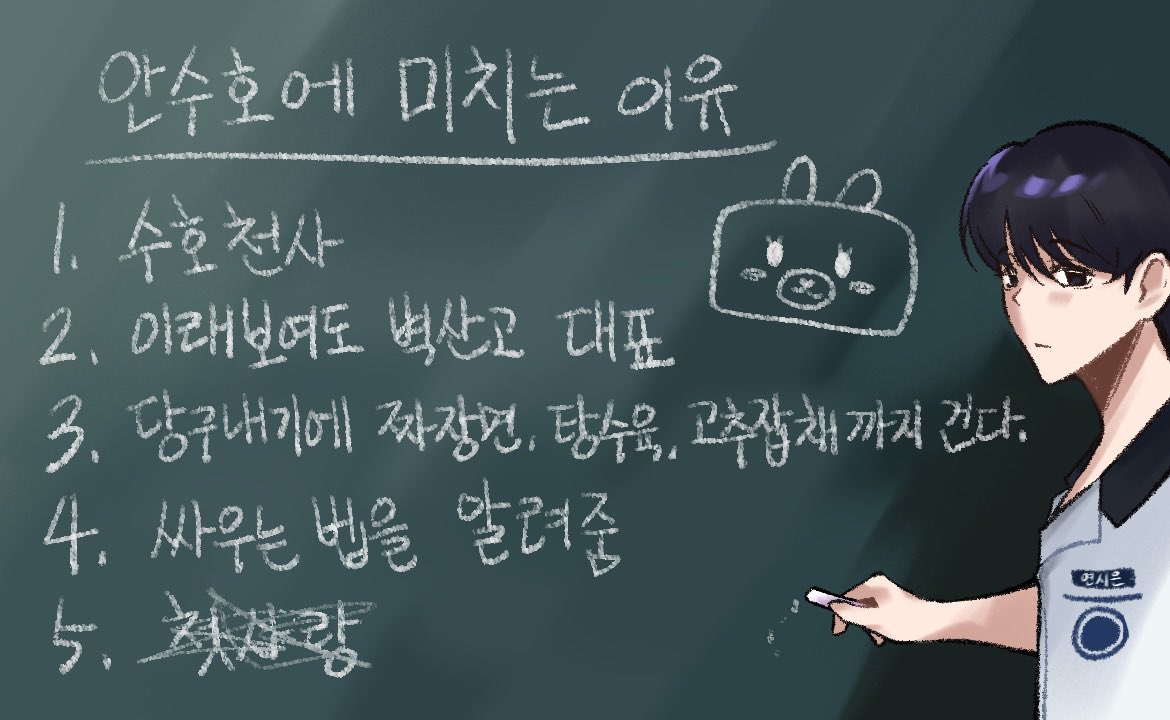 안수호에 미치는 이유
1. 수호천사
2. 이래보여도 벽산고 대표
3. 당구내기에 짜장면, 탕수육, 고추잡채까지 건다.
4. 싸우는 법을 알려줌
5. 첫사랑
연시은